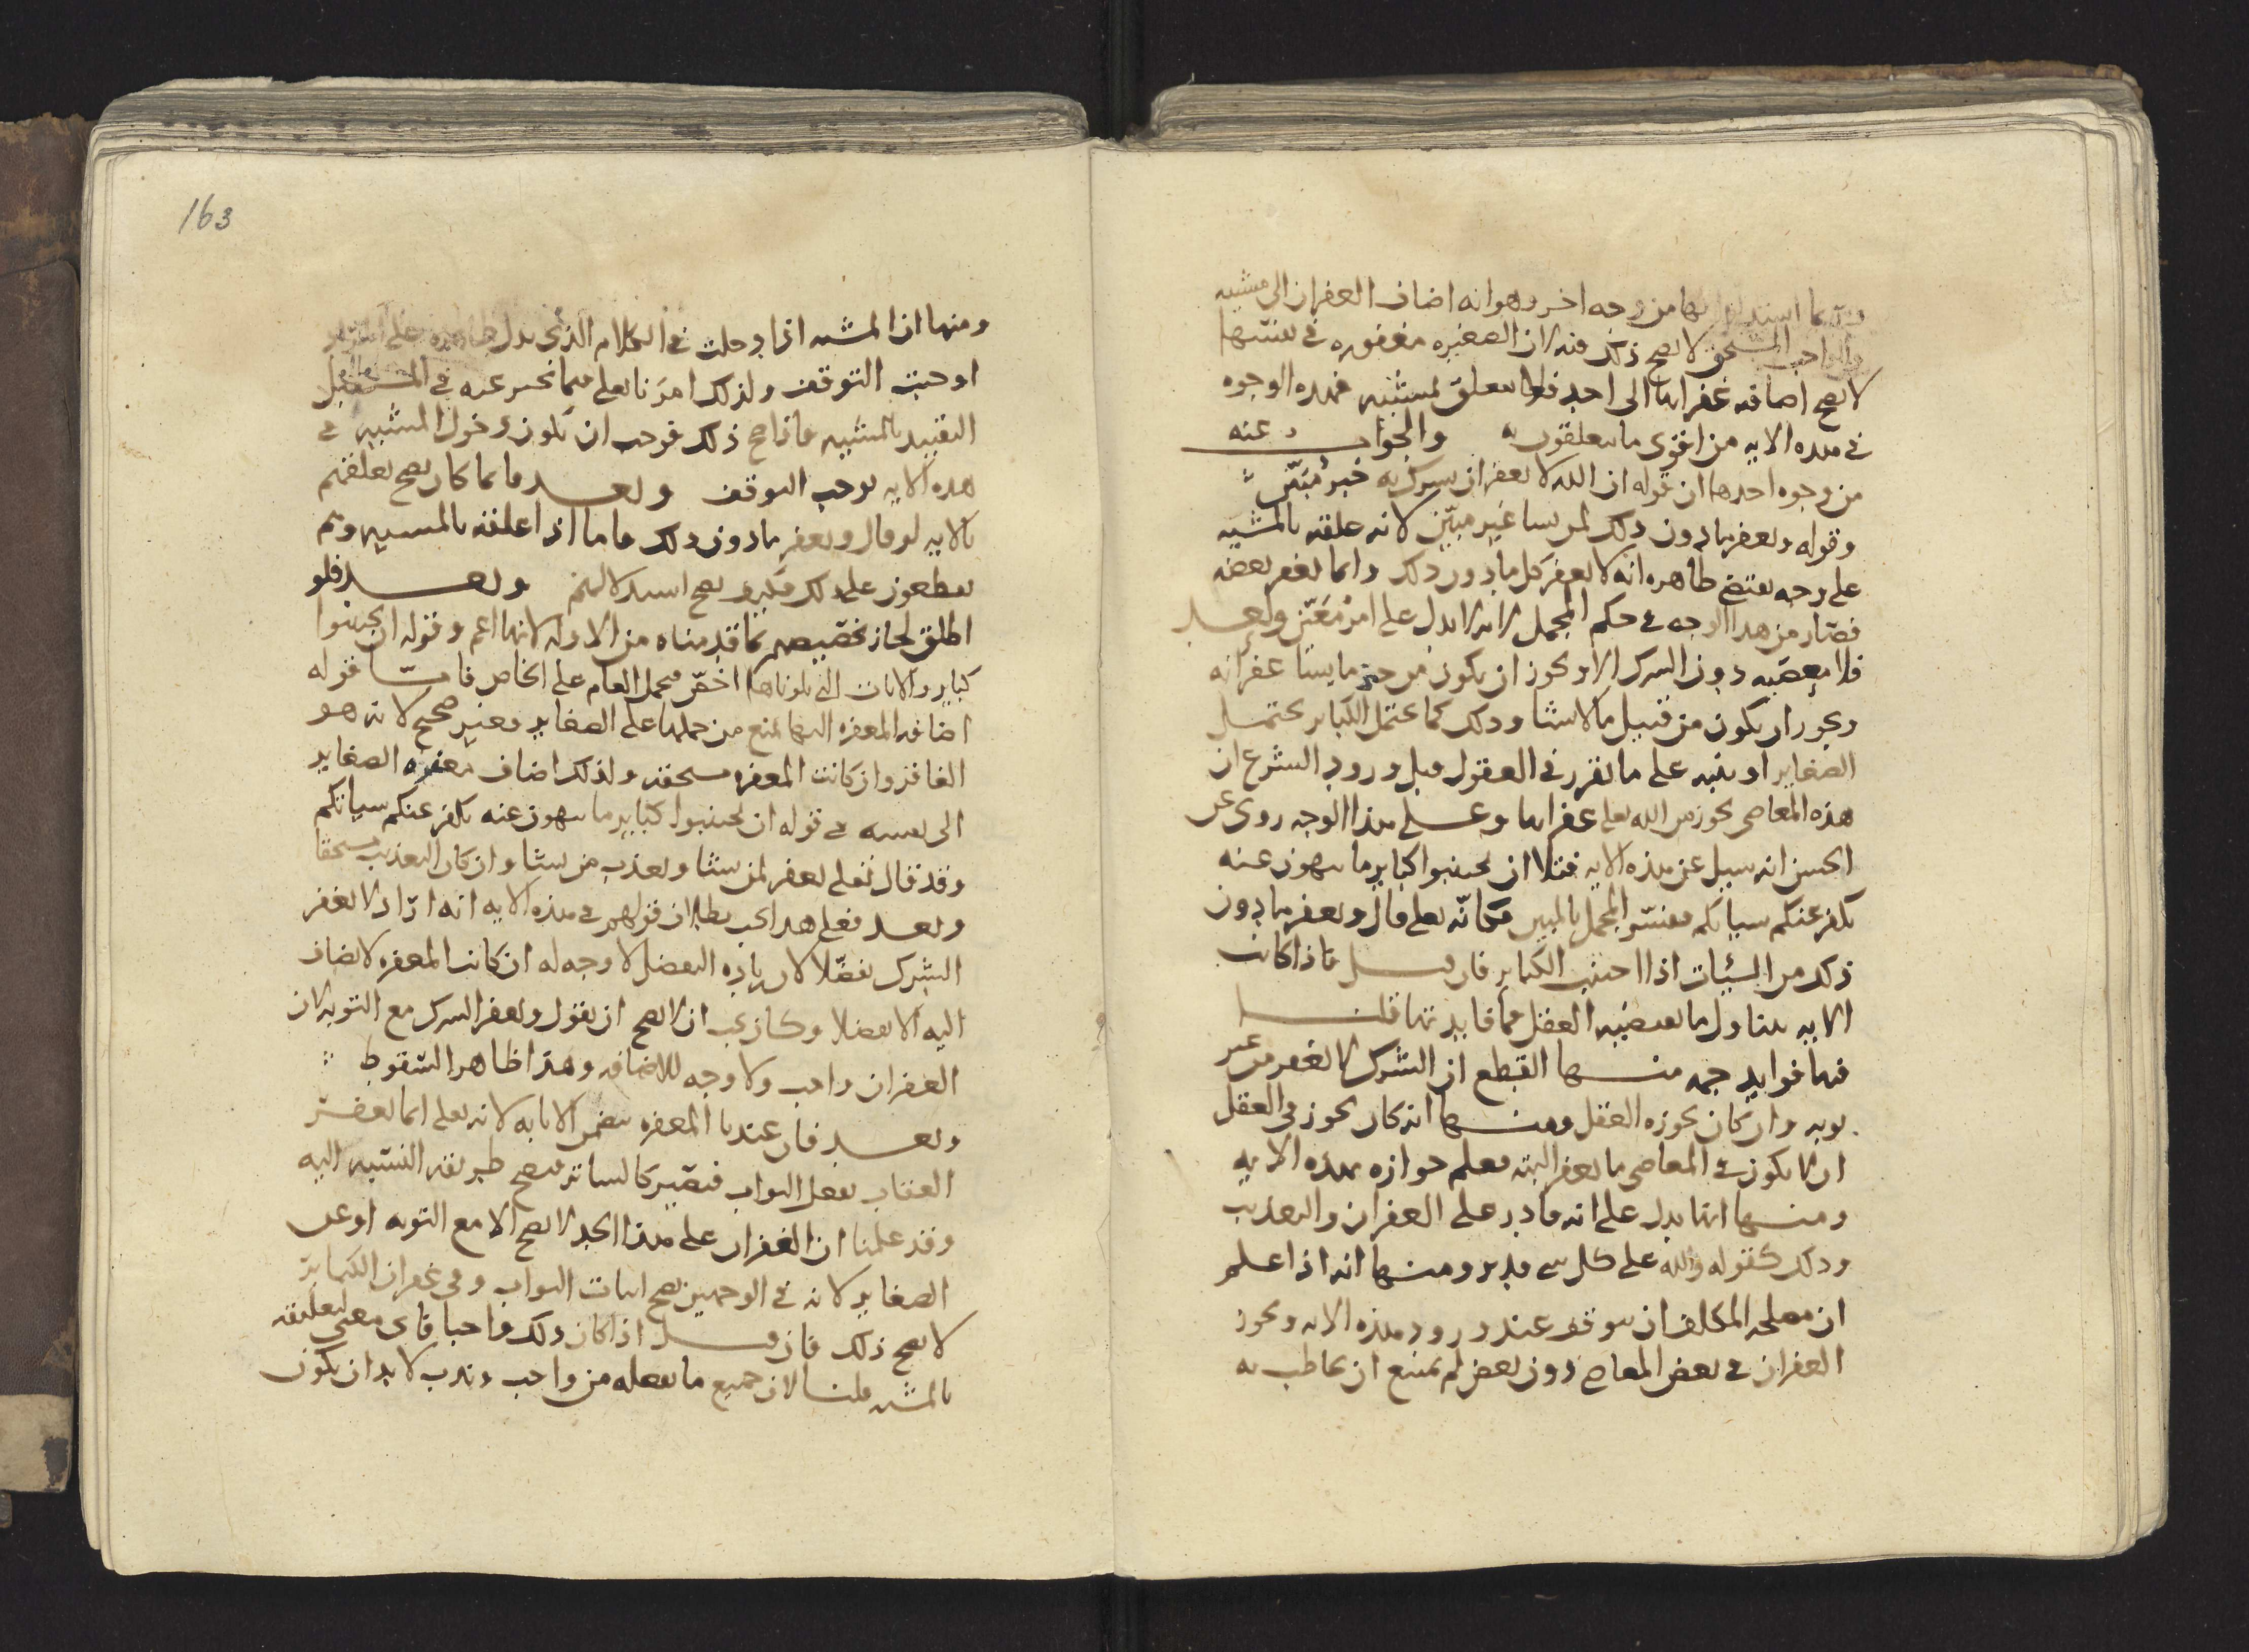 وربما استدلوا بها من وجه اخر وهو انه اضاف الغفران الى مشيه
والواجب المستحق لا يصح ذلك فيه لان الصغيره مغفوره في نفسها
لا يصح اضافه غفرانها الى احد فلا يتعلق بمشيه فهذه الوجوه
في هذه الايه من اقوى ما يتعلقون به والجواب عنه
من وجوه احدها ان قوله ان الله لا يغفر ان يشرك به خبر مبين
وقوله ويغفر ما دون ذلك لمن يشا غير مبين لانه علقه بالمشيه
على وجه يقتضي ظاهره انه لا يغفر كل ما دون ذلك وانما يغفر بعضه
فصار من هذا الوجه في حكم المجمل لانه لا يدل على امر معين وبعد
فلا معصيه دون الشرك الا ويجوز ان يكون من حيز ما يشا غفرانه
ويجوز ان يكون من قبيل ما لا يشا وذلك كما يحتمل الكباير يحتمل
الصغاير او ينبه على ما تقرر في العقول قبل ورود الشرع ان
هذه المعاصي يجوز من الله تعلى غفرانها وعلى هذا الوجه روي عن
الحسن انه سيل عن هذه الايه فتلا ان تجتنبوا كباير ما تنهون عنه
نكفر عنكم سياتكم ففسر المجمل بالمبين فكانه تعلى قال ويغفر ما دون
ذلك من السيئات اذا اجتنب الكباير فان قيل فاذا كانت
الايه تتناول ما يقتضيه العقل فما فايدتها قلنا
فيها فوايد جمه منها القطع ان الشرك لا يغفر من غير
توبه وان كان يجوزه العقل ومنها انه كان يجوز في العقل
ان لا يكون في المعاصي ما يغفر البته فعلم جوازه بهذه الايه
ومنها انها يدل على انه قادر على الغفران والتعذيب
وذلك كقوله والله على كل شي قدير ومنها انه اذا علم
ان مصلحه المكلف ان يتوقف عند ورود هذه الايه ويجوز
الغفران في بعض المعاصي دون بعض لم يمتنع ان يخاطب به
163
ومنها ان المشيه اذا دخلت في الكلام الذي يدل ظاهره على
اوجبت التوقف ولذلك امرنا تعلى فيما نخبر عنه في المستقبل
التقييد بالمشيه فاذا صح ذلك فوجب ان يكون دخول المشيه في
هذه الايه يوجب التوقف وبعد فانما كان يصح تعلقهم
بالايه لو قال ويغفر ما دون ذلك فاما اذا علقه بالمشيه وهم
يقطعون على ذلك فكيف يصح استدلالهم وبعد فلو
اطلق لجاز تخصيصه بما قدمناه من الادله لانها اعم وقوله ان تجتنبوا
كباير والايات التي تلوناها اخص فحمل العام على الخاص فاما قوله
اضافه المغفره اليها يمنع من حملها على الصغاير فغير صحيح لانه هو
الغافر وان كانت المغفره مستحقه ولذلك اضاف مغفره الصغاير
الى نفسه في قوله ان تجتنبوا كباير ما تنهون عنه نكفر عنكم سياتكم
وقد قال تعلى يغفر لمن يشا ويعذب من يشا وان كان التعذيب مستحقا
وبعد فعلى هذا يجب بطلان قولهم في هذه الايه انه اراد لا يغفر
الشرك تفضلا لان زياده التفضل لا وجه له ان كانت المغفره لا يضاف
اليه الا تفضلا وكان يجب ان لا يصح ان يقول ويغفر الشرك مع التوبه لان
الغفران واجب ولا وجه للاضافه وهذا ظاهر السقوط
وبعد فان عندنا المغفره تتضمن الاثابه لانه تعلى انما يغفر
العقاب بفعل الثواب فيصير كالساتر فيصح طريقه النسبه اليه
وقد علمنا ان الغفران على هذا الحد لا يصح الا مع التوبه او على
الصغاير لانه في الوجهين يصح اثبات الثواب وفي غفران الكباير
لا يصح ذلك فان قيل اذا كان ذلك واجبا فاي معنى لتعليقه
بالمشيه قلنا لان جميع ما يفعله من واجب وندب لا بد ان يكون